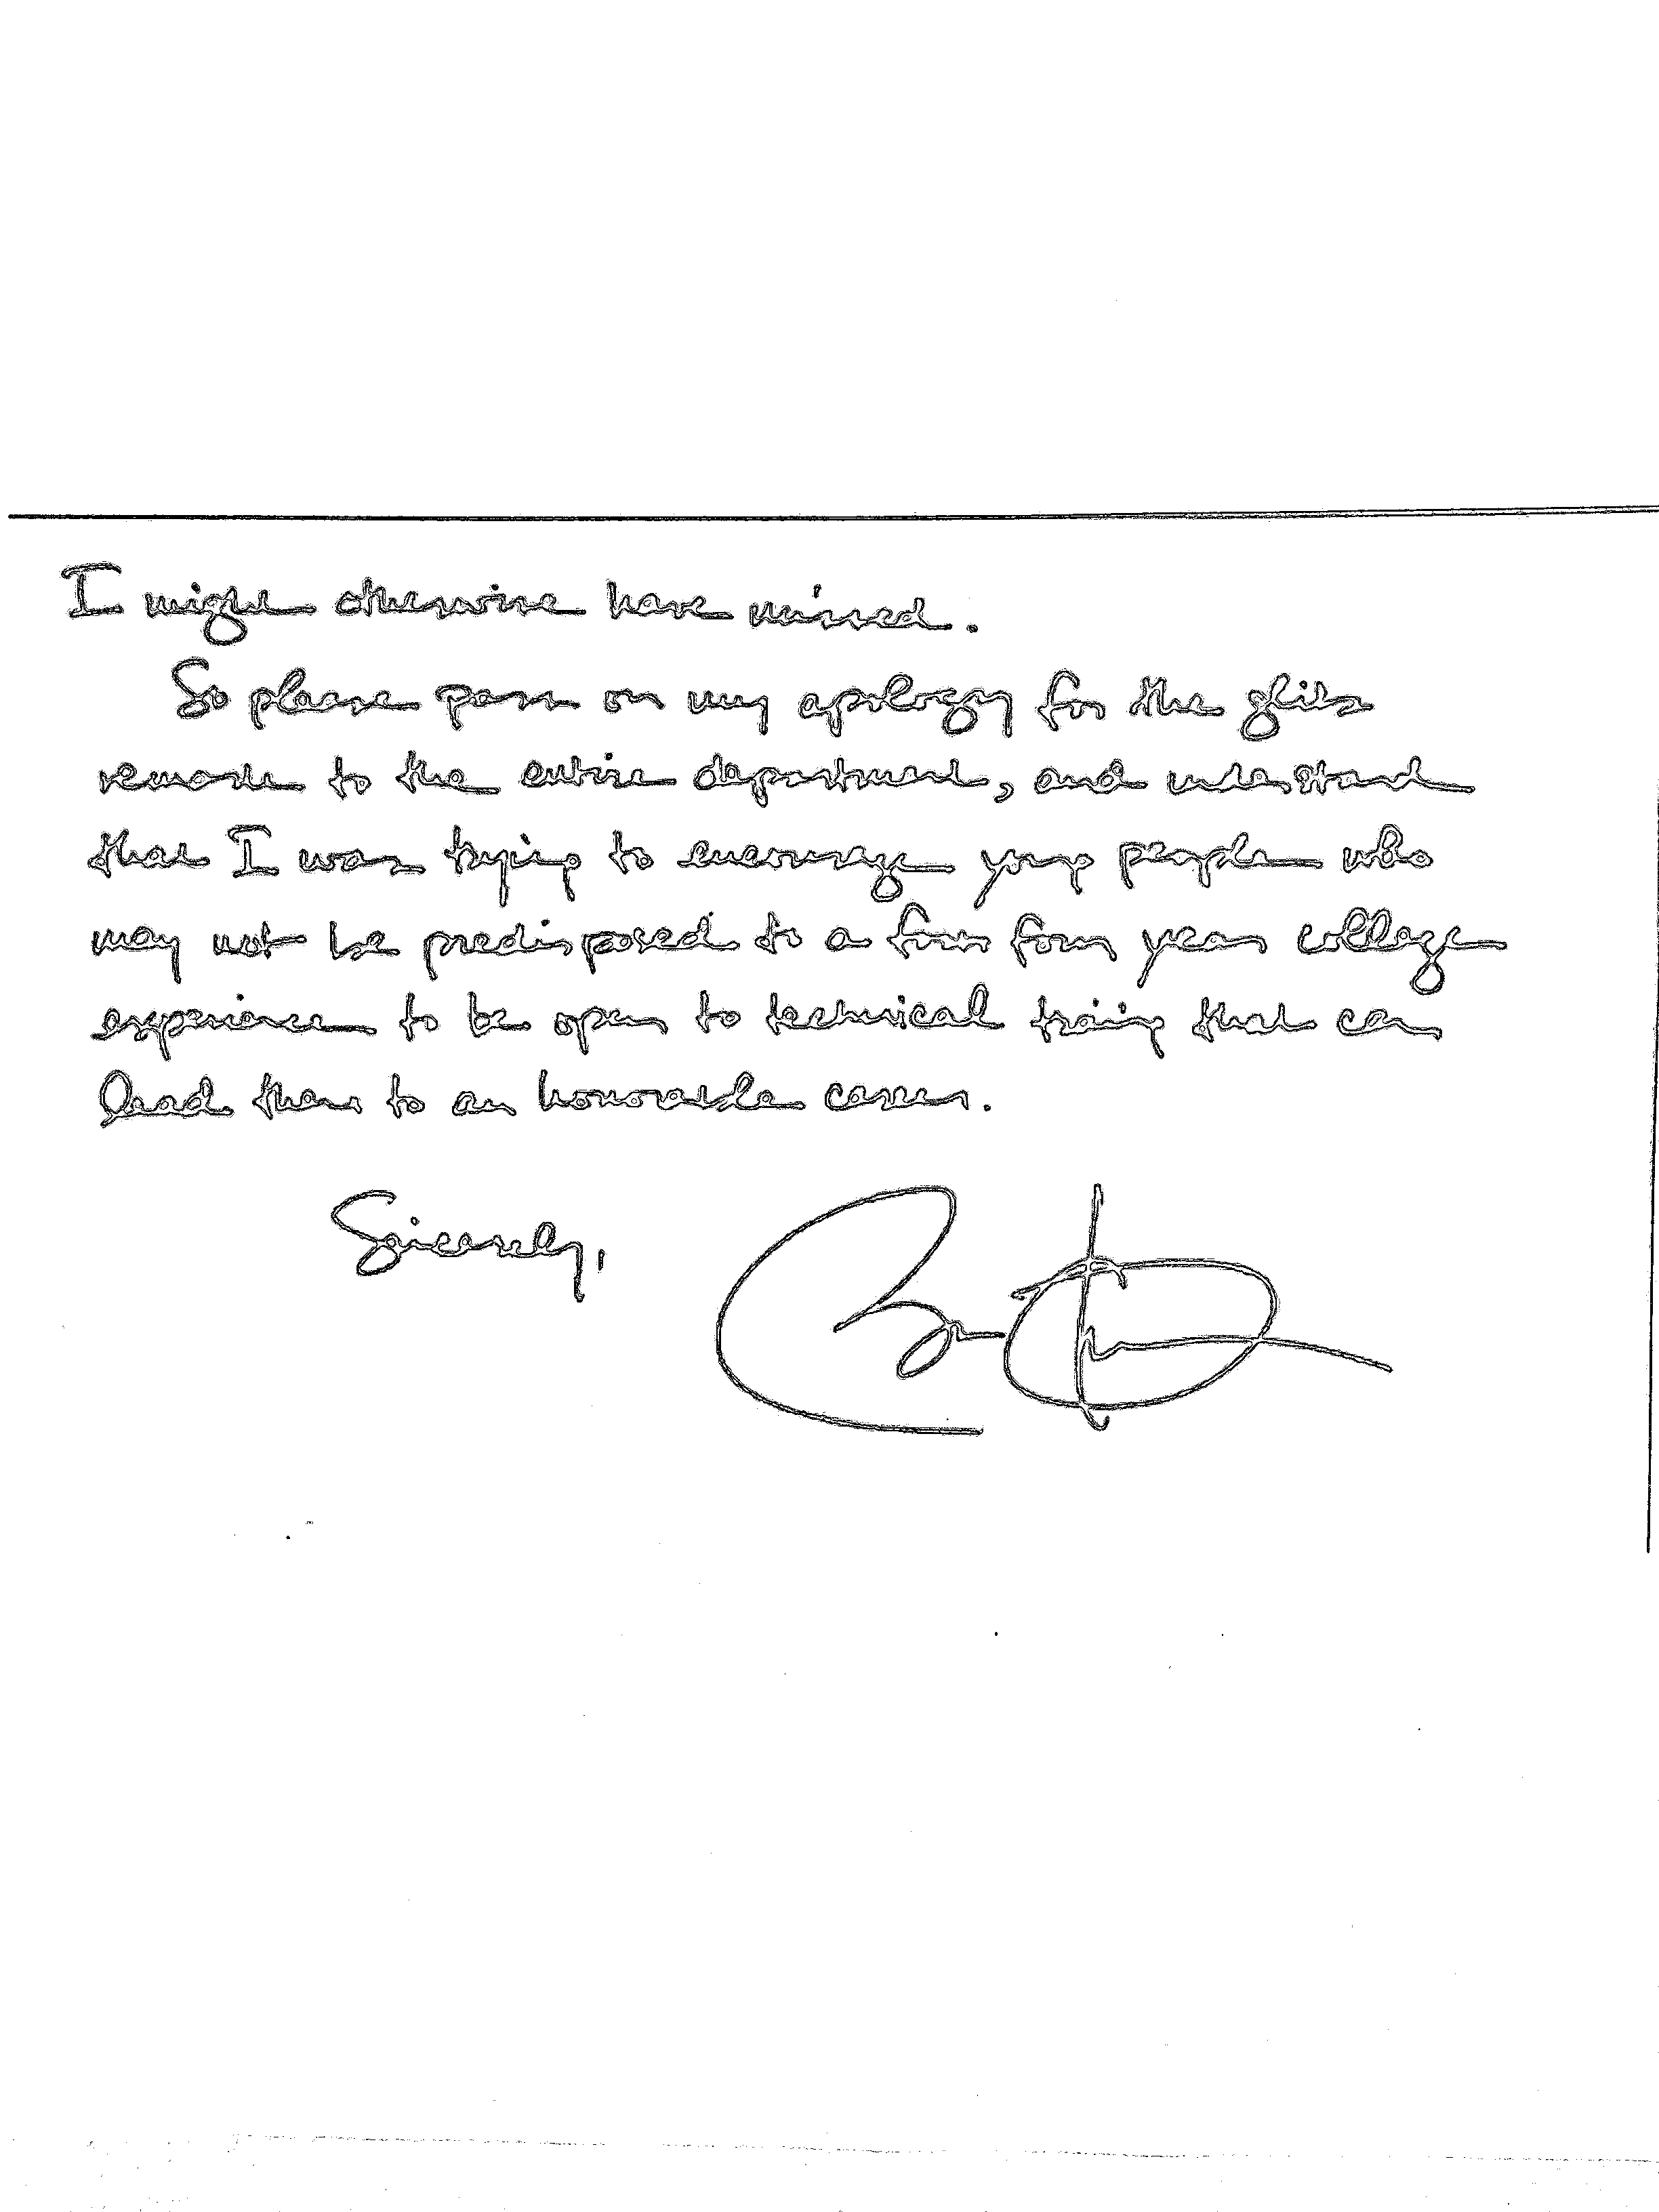 I might otherwise have missed.
So please pass on my apology for the glib
remark to the entire department, and understand
that I was trying to encourage young people who
may not be predisposed to a four four year college
experience to be open to technical training that can
lead them to an honorable career.
Sincerely,